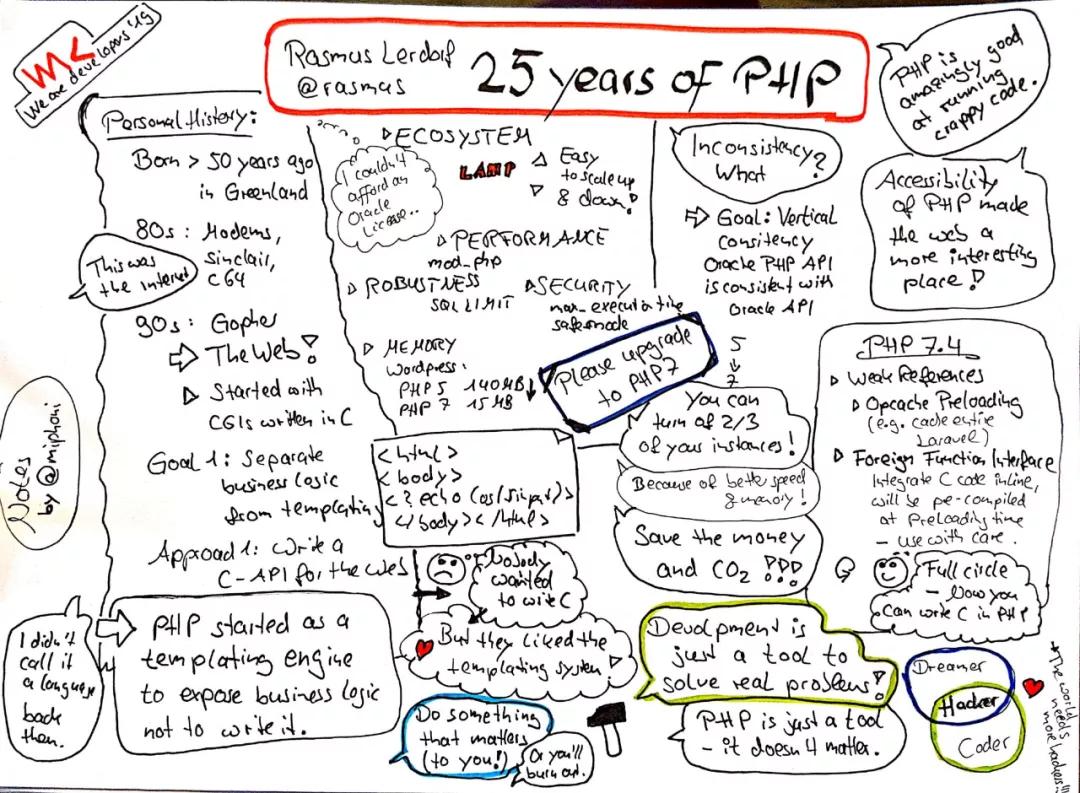 WK
We are developers '19
Rasmus Lerdorf
@rasmus
25 years of PHP
PHP is
amazingly good
at running
crappy code.
Personal History:
Born > 50 years ago
in Greenland
80s: Modems,
Sinclair,
C64
This was
the internet
90s: Gopher
The Web!
Started with
CGIs written in C
Goal 1: Separate
business logic
from templating
Approach 1: Write a
C-API for the Web
PHP started as a
templating engine
to expose business logic
not to write it.
I didn't
call it
a language
back
then.
Notes
by @miphoni
ECOSYSTEM
I couldn't
afford an
Oracle
License..
LAMP
Easy
to scale up
& down!
PERFORMANCE
mod_php
ROBUSTNESS
SQL LIMIT
SECURITY
max_execution time
safe mode
MEMORY
Wordpress:
PHP 5 140MB
PHP 7 15MB
Please upgrade
to PHP7
<html>
<body>
</body></html>
Nobody
wanted
to write C
But they liked the
templating system
Do something
that matters
(to you!)
Or you'll
burn out.
Inconsistency?
What
Goal: Vertical
Consitency
Oracle PHP API
is consistent with
Oracle API
5
7
You can
turn of 2/3
of your instances!
Because of better speed
& memory!
Save the money
and CO2 !!!
Accessibility
of PHP made
the web a
more interesting
place!
PHP 7.4
Weak References
Opcache Preloading
(e.g. cache entire
Laravel)
Foreign Function Interface
Integrate C code inline,
will be pre-compiled
at Preloading time
- use with care.
Full circle
- Now you
can write C in PHP
Devolpment is
just a tool to
solve real problems!
PHP is just a tool
- it doesn't matter.
Dreamer
Hacker
Coder
*The world
needs
more hackers!!!